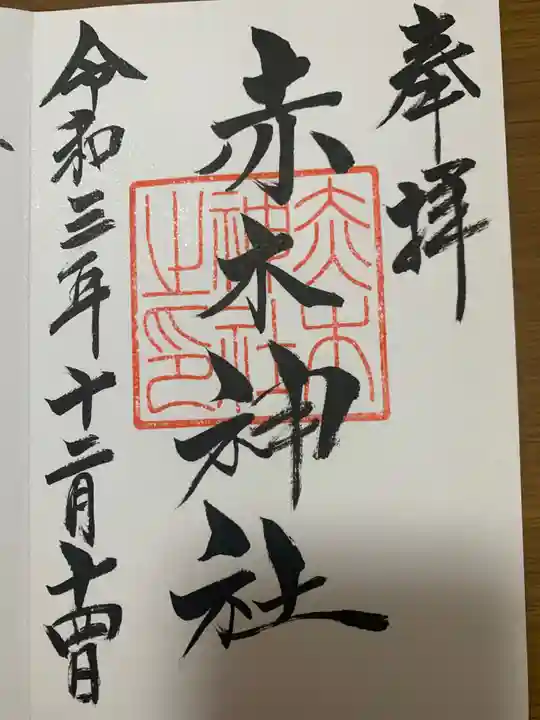 奉拝
赤木神社
赤木神社之印
令和三年十二月十四日